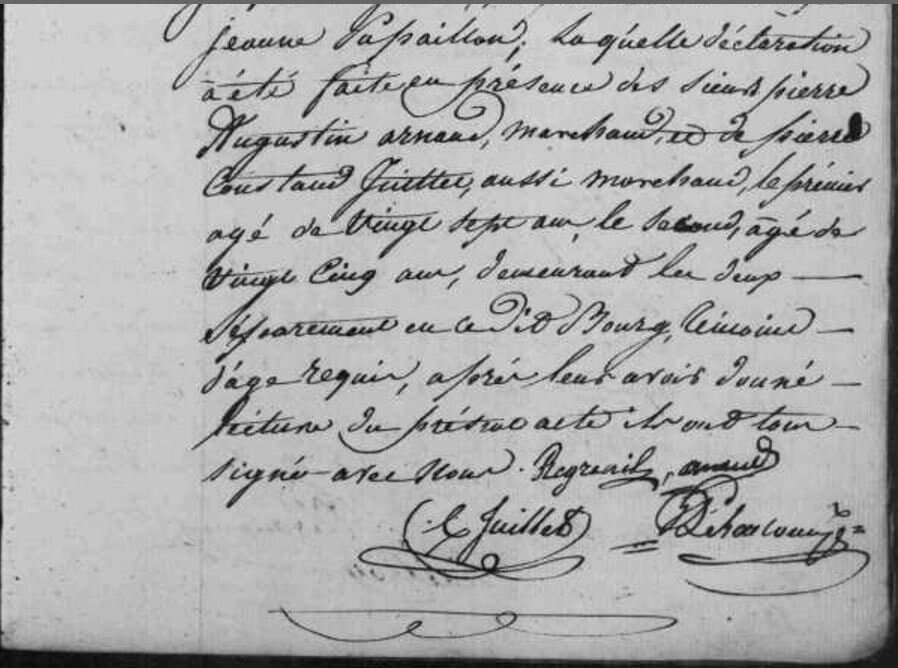 jeanne Papaillon; Laquelle déclaration
à été faite en présence des sieurs pierre
Augustin arnaud, marchand, et de pierre
Constand Juillet, aussi marchand, le prémier
agé de Vingt sept ans, le second, âgé de
Vingt Cinq ans, demeurant les deux —
séparement en ce dit Bourg, témoins —
d'age requis, aprés leurs avoir donné —
lecture du présent acte ils ont tous —
signé avec nous. Regrenil, arnaud
C Juillet